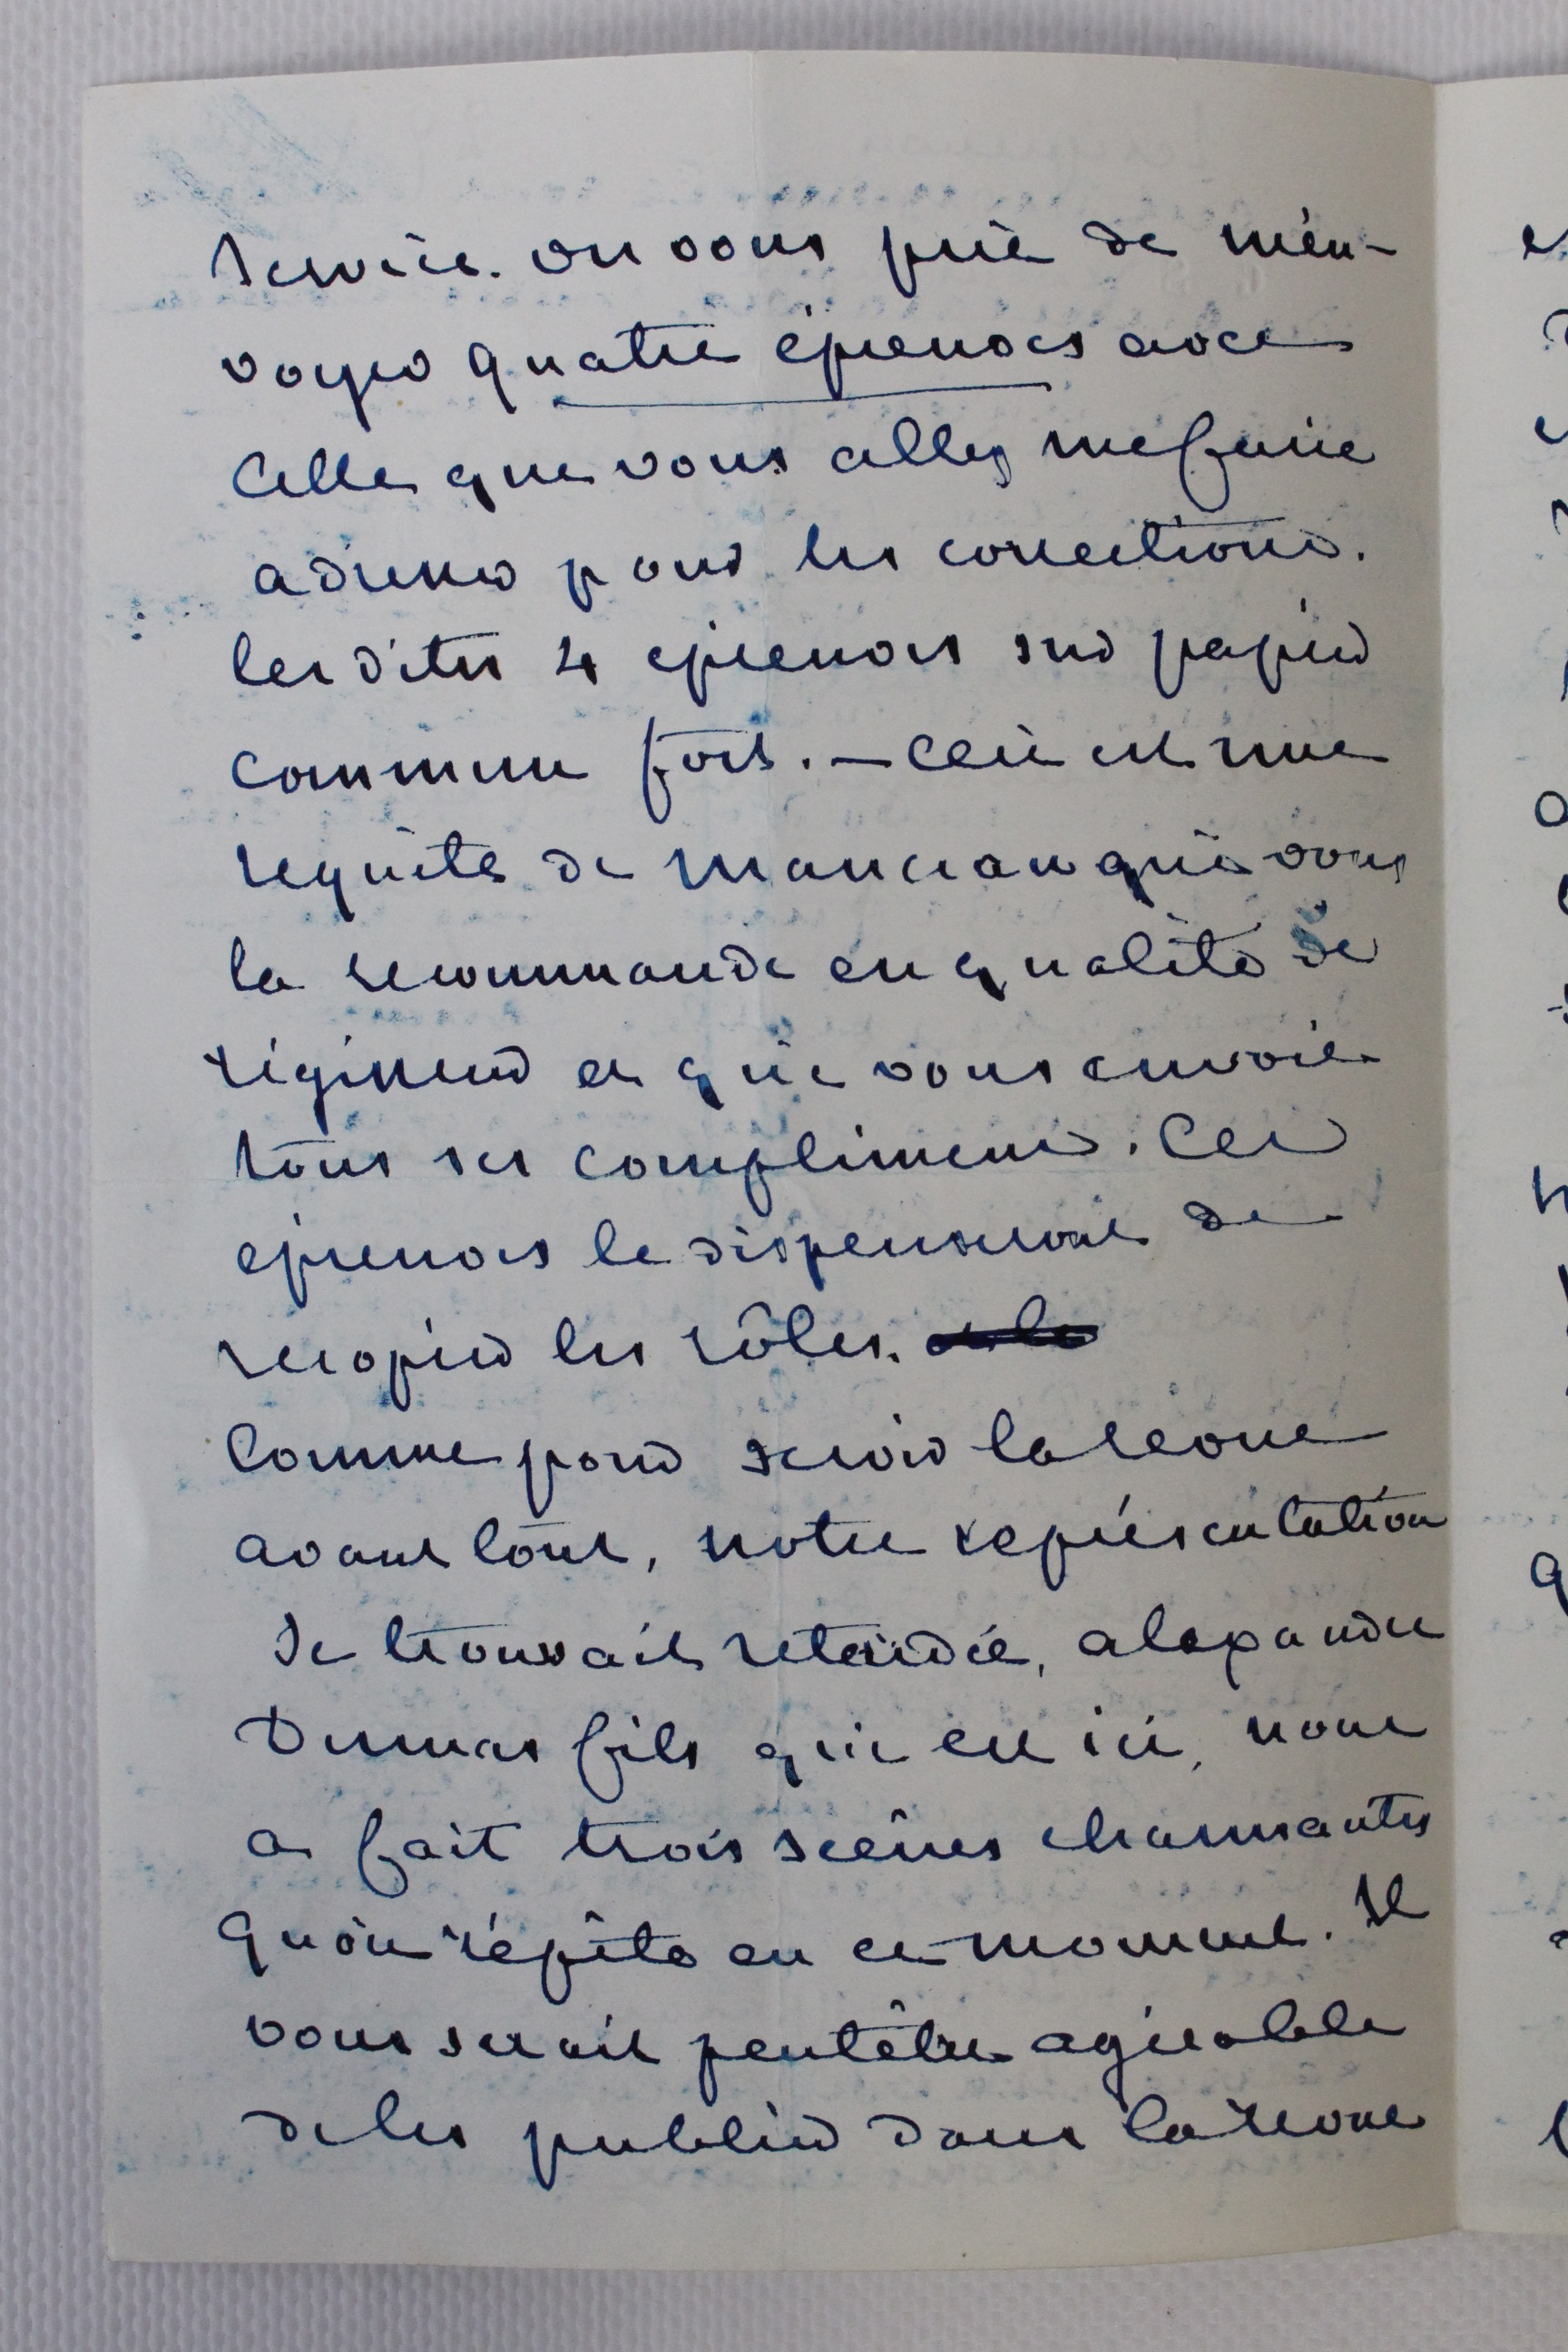 service. on vous prie de m'en-
voyer quatre épreuves avec
celle que vous allez me faire
adresser pour les corrections.
les dites 4 épreuves sur papier
commun fort. — Ceci est une
requête de Manceau qui vous
la recommande en qualité de
régisseur et qui vous envoie
tous ses compliments. Ces
épreuves le dispenseront de
recopier les rôles.
Comme pour servir la revue
avant tout, notre représentation
se trouvait retardée, alexandre
Dumas fils qui est ici, nous
a fait trois scênes charmantes
qu'on répète en ce moment. Il
vous serait peutêtre agréable
de les publier dans la revue